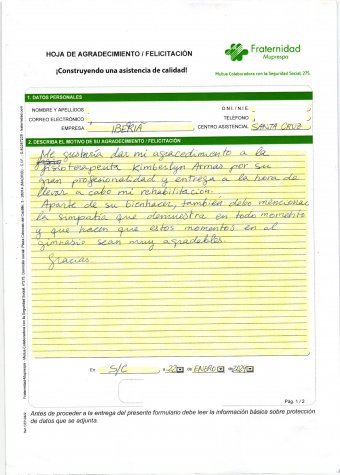 HOJA DE AGRADECIMIENTO / FELICITACIÓN
Fraternidad
Muprespa
¡Construyendo una asistencia de calidad!
Mutua Colaboradora con la Seguridad Social, 275
1. DATOS PERSONALES
NOMBRE Y APELLIDOS
D.N.I. / N.I.E.
CORREO ELECTRÓNICO
TELÉFONO
EMPRESA IBERIA
CENTRO ASISTENCIAL SANTA CRUZ
2. DESCRIBA EL MOTIVO DE SU AGRADECIMIENTO / FELICITACIÓN
Me gustaría dar mi agradecimiento a la
fisioterapeuta Kimberlyn Armas por su
gran profesionalidad y entrega a la hora de
llevar a cabo mi rehabilitación.
Aparte de su bienhacer, también debo mencionar
la simpatía que demuestra en todo momento
y que hacen que estos momentos en el
gimnasio sean muy agradables.
Gracias
En S/C a 22 de ENERO de 2024
Pág. 1 / 2
Antes de proceder a la entrega del presente formulario debe leer la información básica sobre protección
de datos que se adjunta